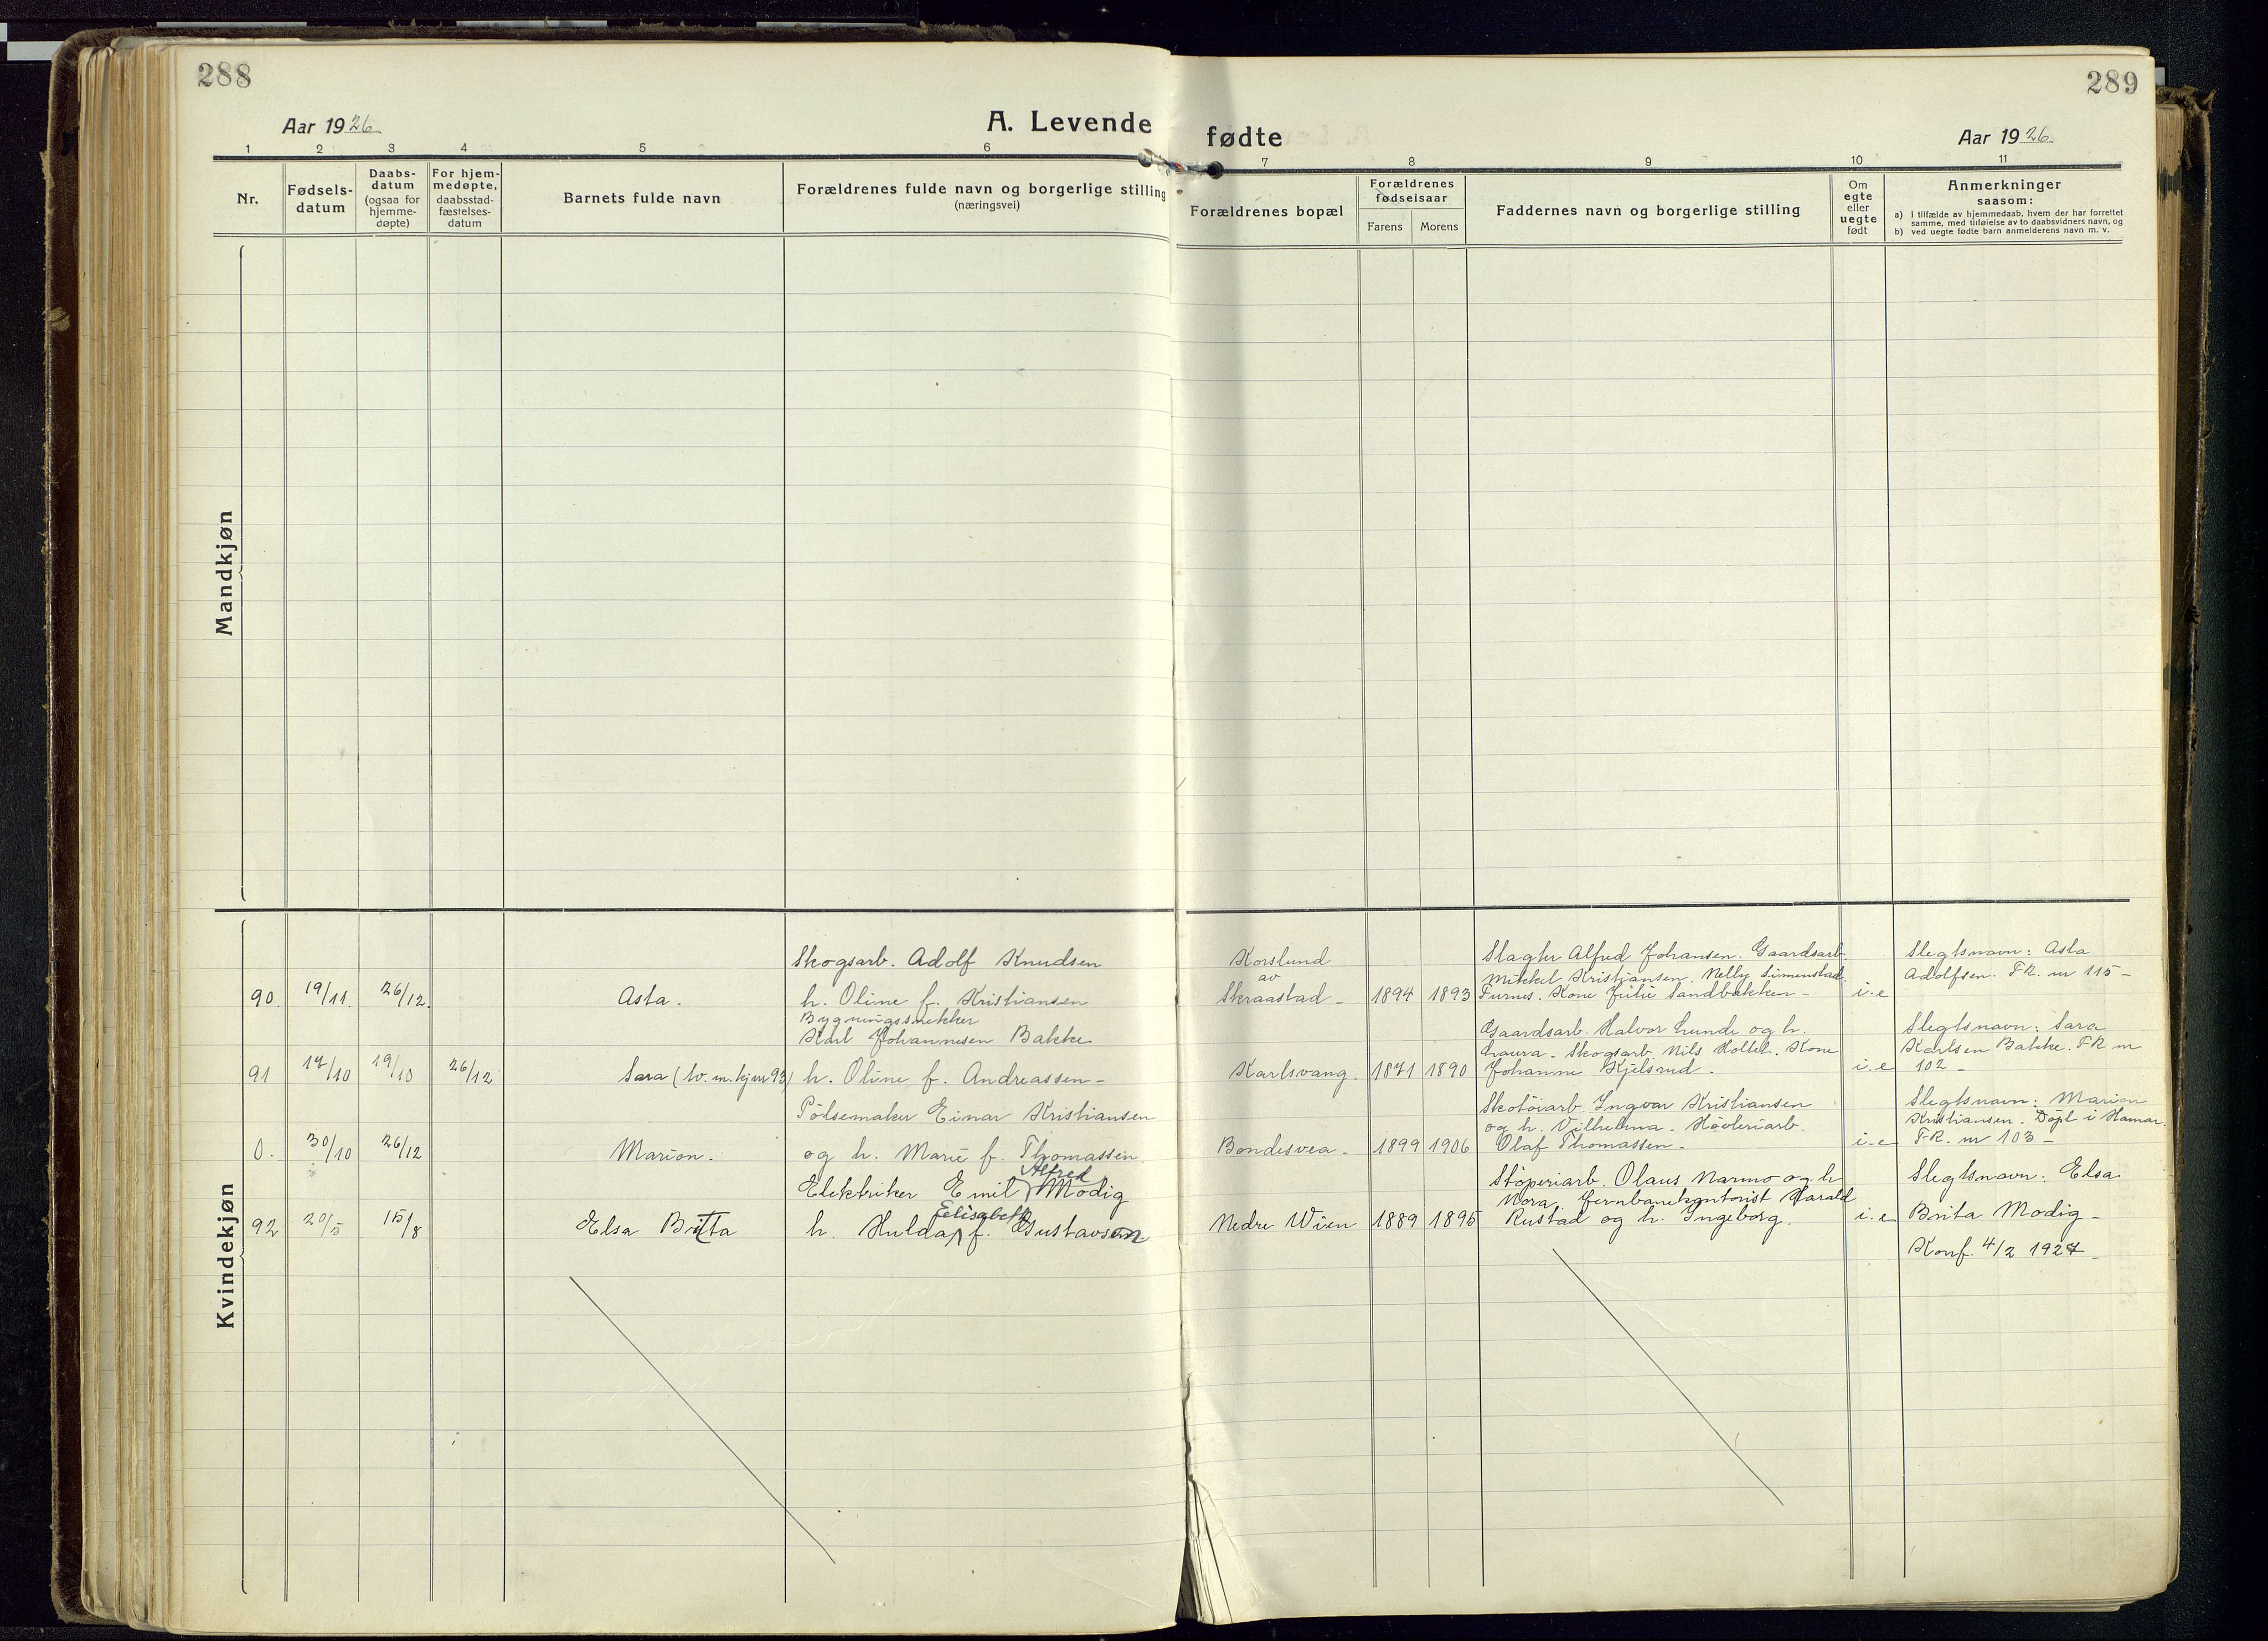 288
289
Aar 1926
A. Levende fødte
Aar 1926
1 2 3 4 5 6 7 8 9 10 11
Nr.
Fødsels-
datum
Daabs-
datum
(ogsaa for
hjemme-
døpte)
For hjem-
medøpte,
daabsstad-
fæstelses-
datum
Barnets fulde navn
Forældrenes fulde navn og borgerlige stilling
(næringsvei)
Forældrenes bopæl
Forældrenes
fødselsaar
Farens Morens
Faddernes navn og borgerlige stilling
Om
egte
eller
uegte
født
Anmerkninger
saasom:
a) i tilfælde av hjemmedaab, hvem der har forrettet
samme, med tilføielse av to daabsvidners navn, og
b) ved uegte fødte barn anmelderens navn m. v.
Mandkjøn
Kvindekjøn
90. 19/11 26/12. Asta.
Skogsarb. Adolf Knudsen
h. Oline f. Kristiansen
Korslund
av
Skraastad - 1894 1893
Slagter Alfred Johansen. Gaardsarb.
Mikkel Kristiansen. Nelly Simenstad
Furnes. Kone Julie Sandbakken -
i.e
Slegtsnavn: Asta
Adolfsen. FR. nr 115 -
91 17/10 19/10 26/12 Sara (tv. m. kj nr 93)
Bygningssnekker
Karl Johannesen Bakke
h. Oline f. Andreassen -
Karlsvang - 1871 1890
Gaardsarb. Halvor Lunde og h.
Laura - Skogsarb. Nils Holleh. Kone
Johanne Kjelsrud -
i.e
Slegtsnavn: Sara
Karlsen Bakke. FR nr
102 -
0. 30/10 26/12 Marion.
Pölsemaker Einar Kristiansen
og h. Marie f. Thomassen
Bondesvea - 1899 1906
Skotöiarb. Ingvar Kristiansen
og h. Vilhelma - Høvleriarb.
Olaf Thomassen -
i-e
Slegtsnavn: Marion
Kristiansen. Döpt i Hamar.
FR. nr 103 -
92 20/5 15/8 Elsa Britta
Alfred
Elektriker Emil Modig
Elisabeth
h. Hulda f. Gustavson
Nedre Wien 1889 1895
Støperiarb. Olaus Narmo og h
Nora, Jernbanekontorist Harald
Rustad og h. Ingeborg.
i.e
Slegtsnavn: Elsa
Brita Modig -
Konf. 4/2 1927 -